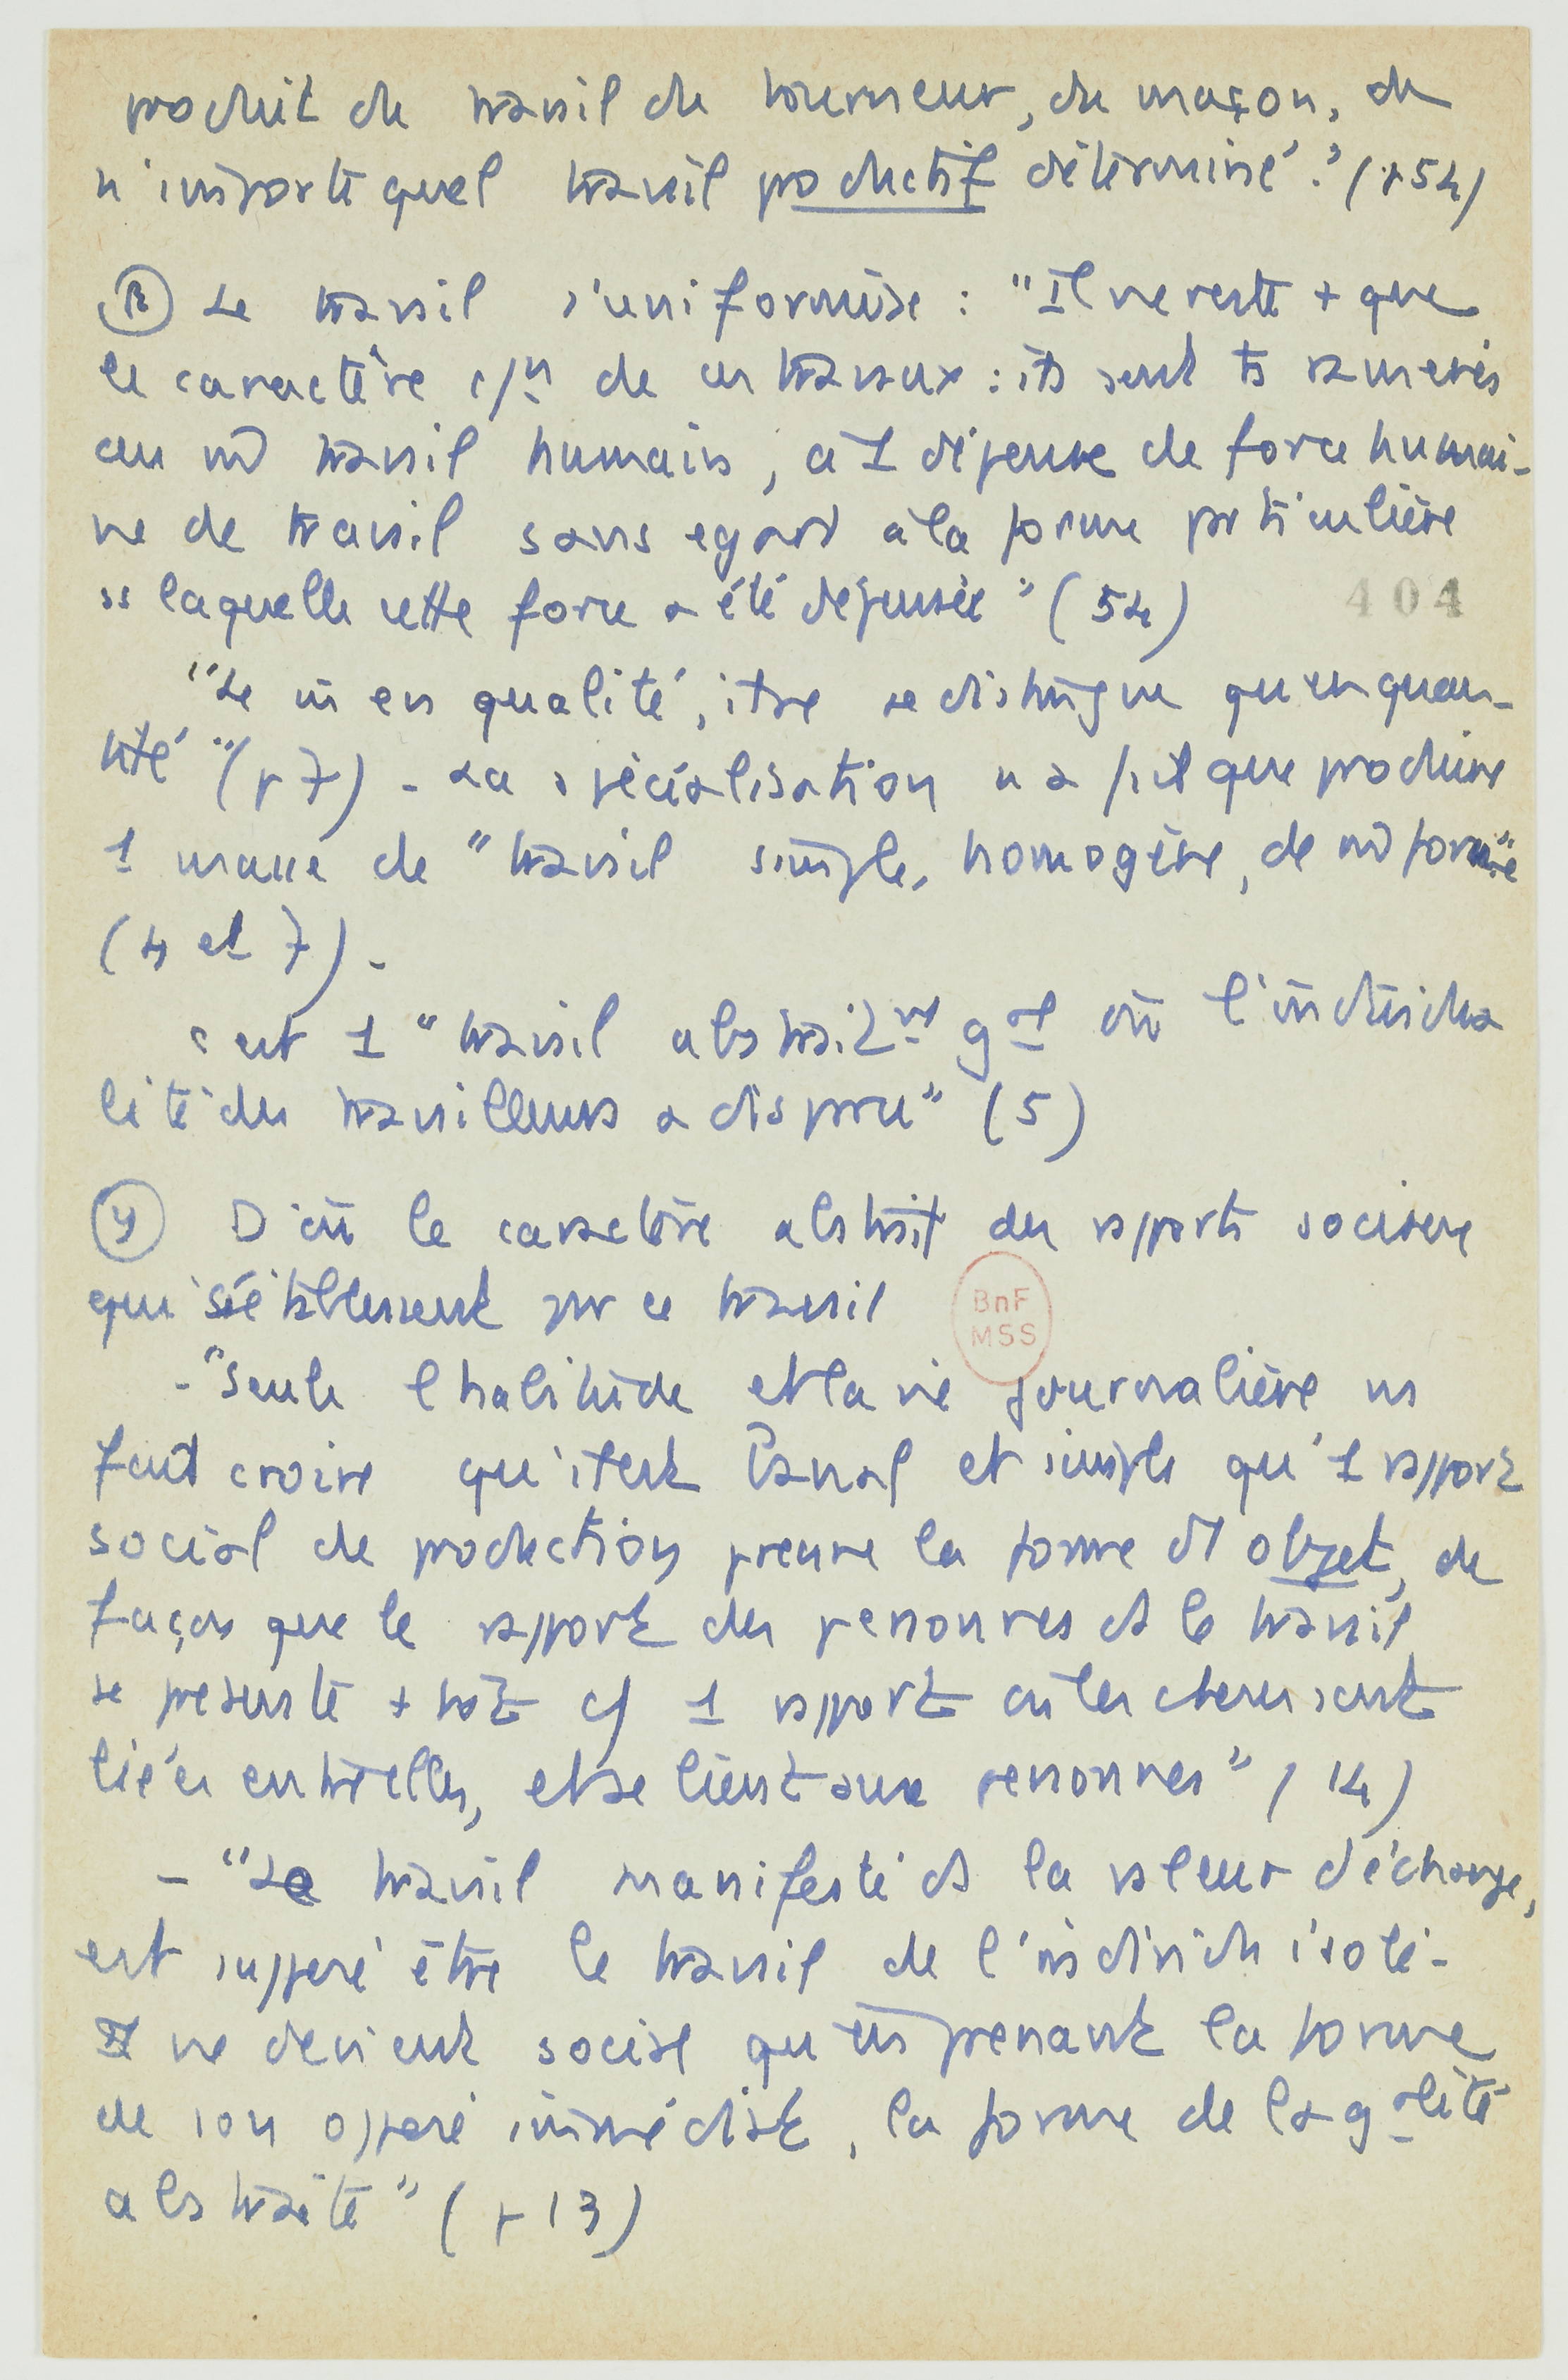 produit du travail du tourneur, du maçon, de
n'importe quel travail productif déterminé." (p 54)
β Le travail s'uniformise : "Il ne reste + que
le caractère c/n de ces travaux : ils sont ts ramenés
au m̂ travail humain, à 1 dépense de force humai-
ne de travail sans egard à la forme particulière
ss laquelle cette force a été dépensée" (54)
404
"Le m̂ en qualité, il ne se distingue qu'en quan-
tité" (p 7) - La spécialisation n'a fait que produire
1 masse de "travail simple, homogène, de m̂ forme"
(4 et 7) -
c'est 1 "travail abstraitnt gal où l'individua
lité des travailleurs a disparu" (5)
γ D'où le caractère abstrait des rapports sociaux
qui s'établissent sur ce travail
BnF
MSS
- "Seule l'habitude et la vie journalière ns
fait croire qu'il est banal et simple qu'1 rapport
social de production prenne la forme d'1 objet, de
façon que le rapport des personnes ds le travail
se présente + tôt c/ 1 rapport où les choses sont
liées entre elles, et se lient aux personnes" (14)
- "Le travail manifesté ds la valeur d'échange,
est supposé être le travail de l'individu isolé -
Il ne devient social qu'en prenant la forme
de son opposé immédiat, la forme de la galité
abstraite" (p 13)